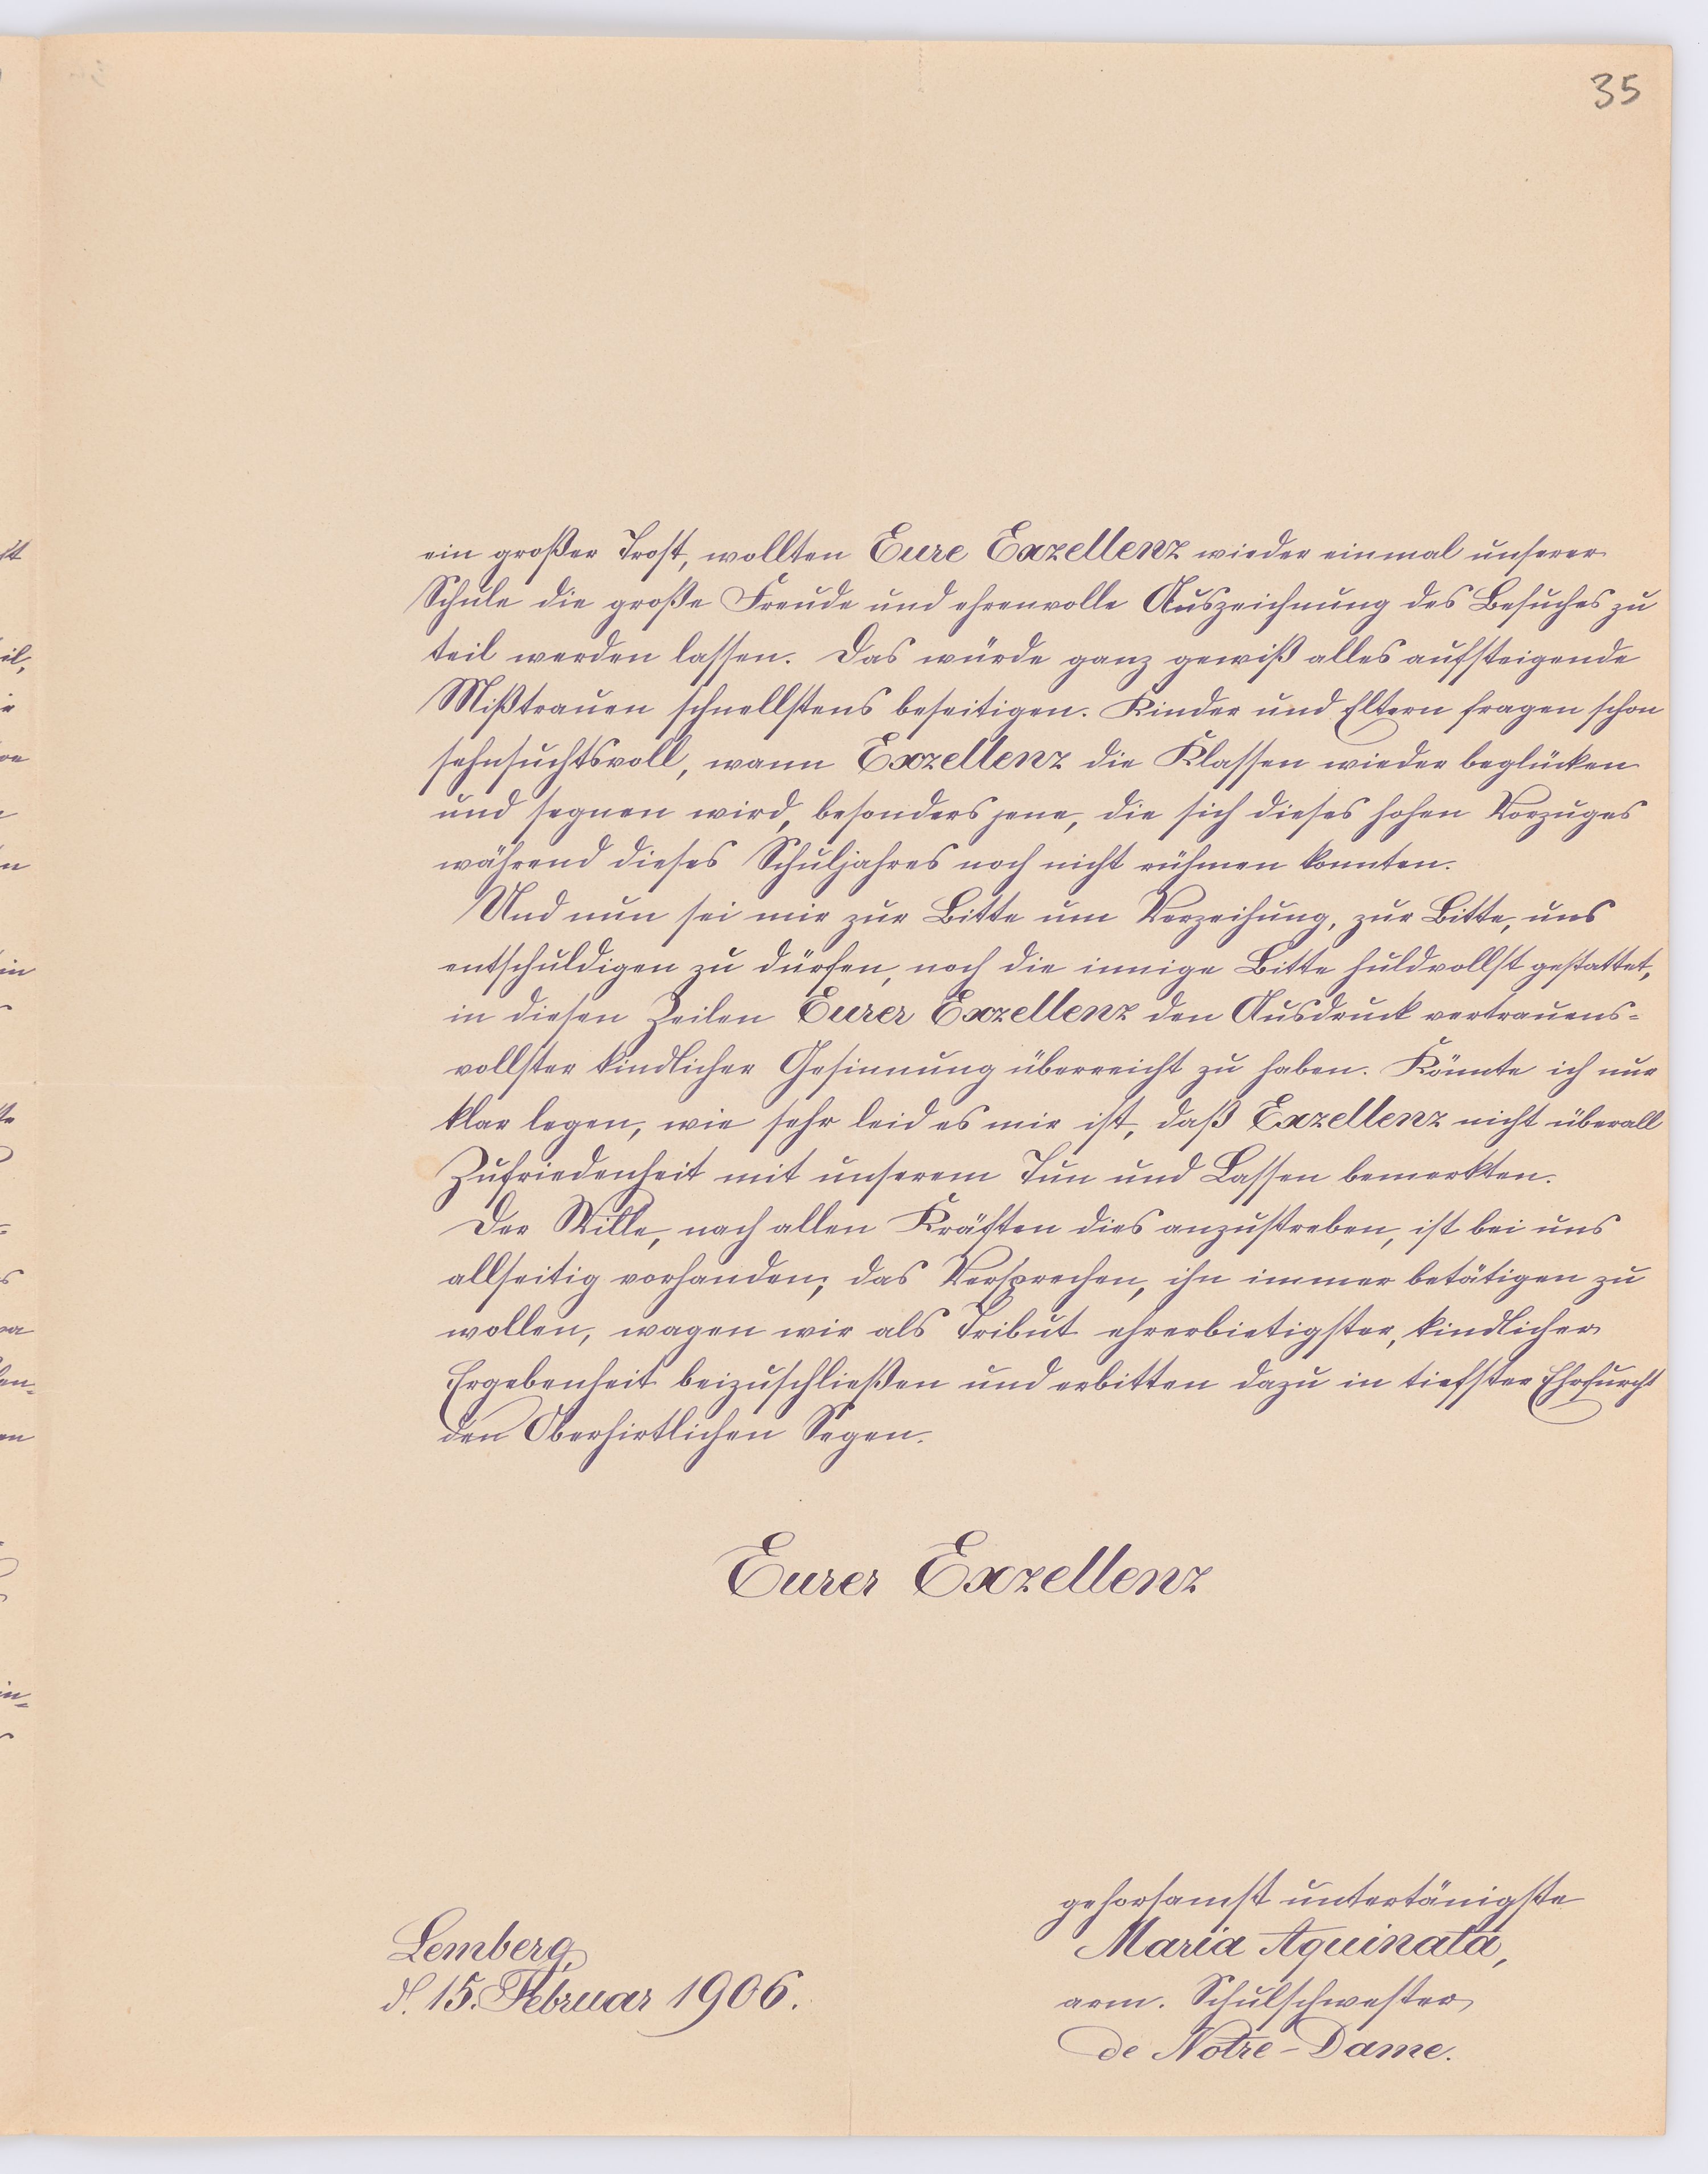 35
ein großer Trost, wollten Eure Exzellenz wieder einmal unserer
Schule die große Freude und ehrenvolle Auszeichnung des Besuches zu
teil werden lassen. Das würde ganz gewiß alles aufsteigende
Mißtrauen schnellstens beseitigen. Kinder und Eltern fragen schon
sehnsuchtsvoll, wann Exzellenz die Klassen wieder beglücken
und segnen wird, besonders jene, die sich dieses hohen Vorzuges
während dieses Schuljahres noch nicht rühmen konnten.
Und nun sei mir zur Bitte um Verzeihung, zur Bitte, uns
entschuldigen zu dürfen, noch die innige Bitte huldvollst gestattet,
in diesen Zeilen Eurer Exzellenz den Ausdruck vertrauens-
vollster kindlicher Gesinnung überreicht zu haben. Könnte ich nur
klar legen, wie sehr leid es mir ist, daß Exzellenz nicht überall
Zufriedenheit mit unserem Tun und Lassen bemerkten.
Der Wille, nach allen Kräften dies anzustreben, ist bei uns
allseitig vorhanden; das Versprechen, ihn immer betätigen zu
wollen, wagen wir als Tribut ehrerbietigster, kindlicher
Ergebenheit beizuschließen und erbitten dazu in tiefster Ehrfurcht
den Oberhirtlichen Segen.
Eurer Exzellenz
gehorsamst untertänigste
Maria Aquinata,
arm. Schulschwester
de Notre-Dame.
Lemberg,
d. 15. Februar 1906.